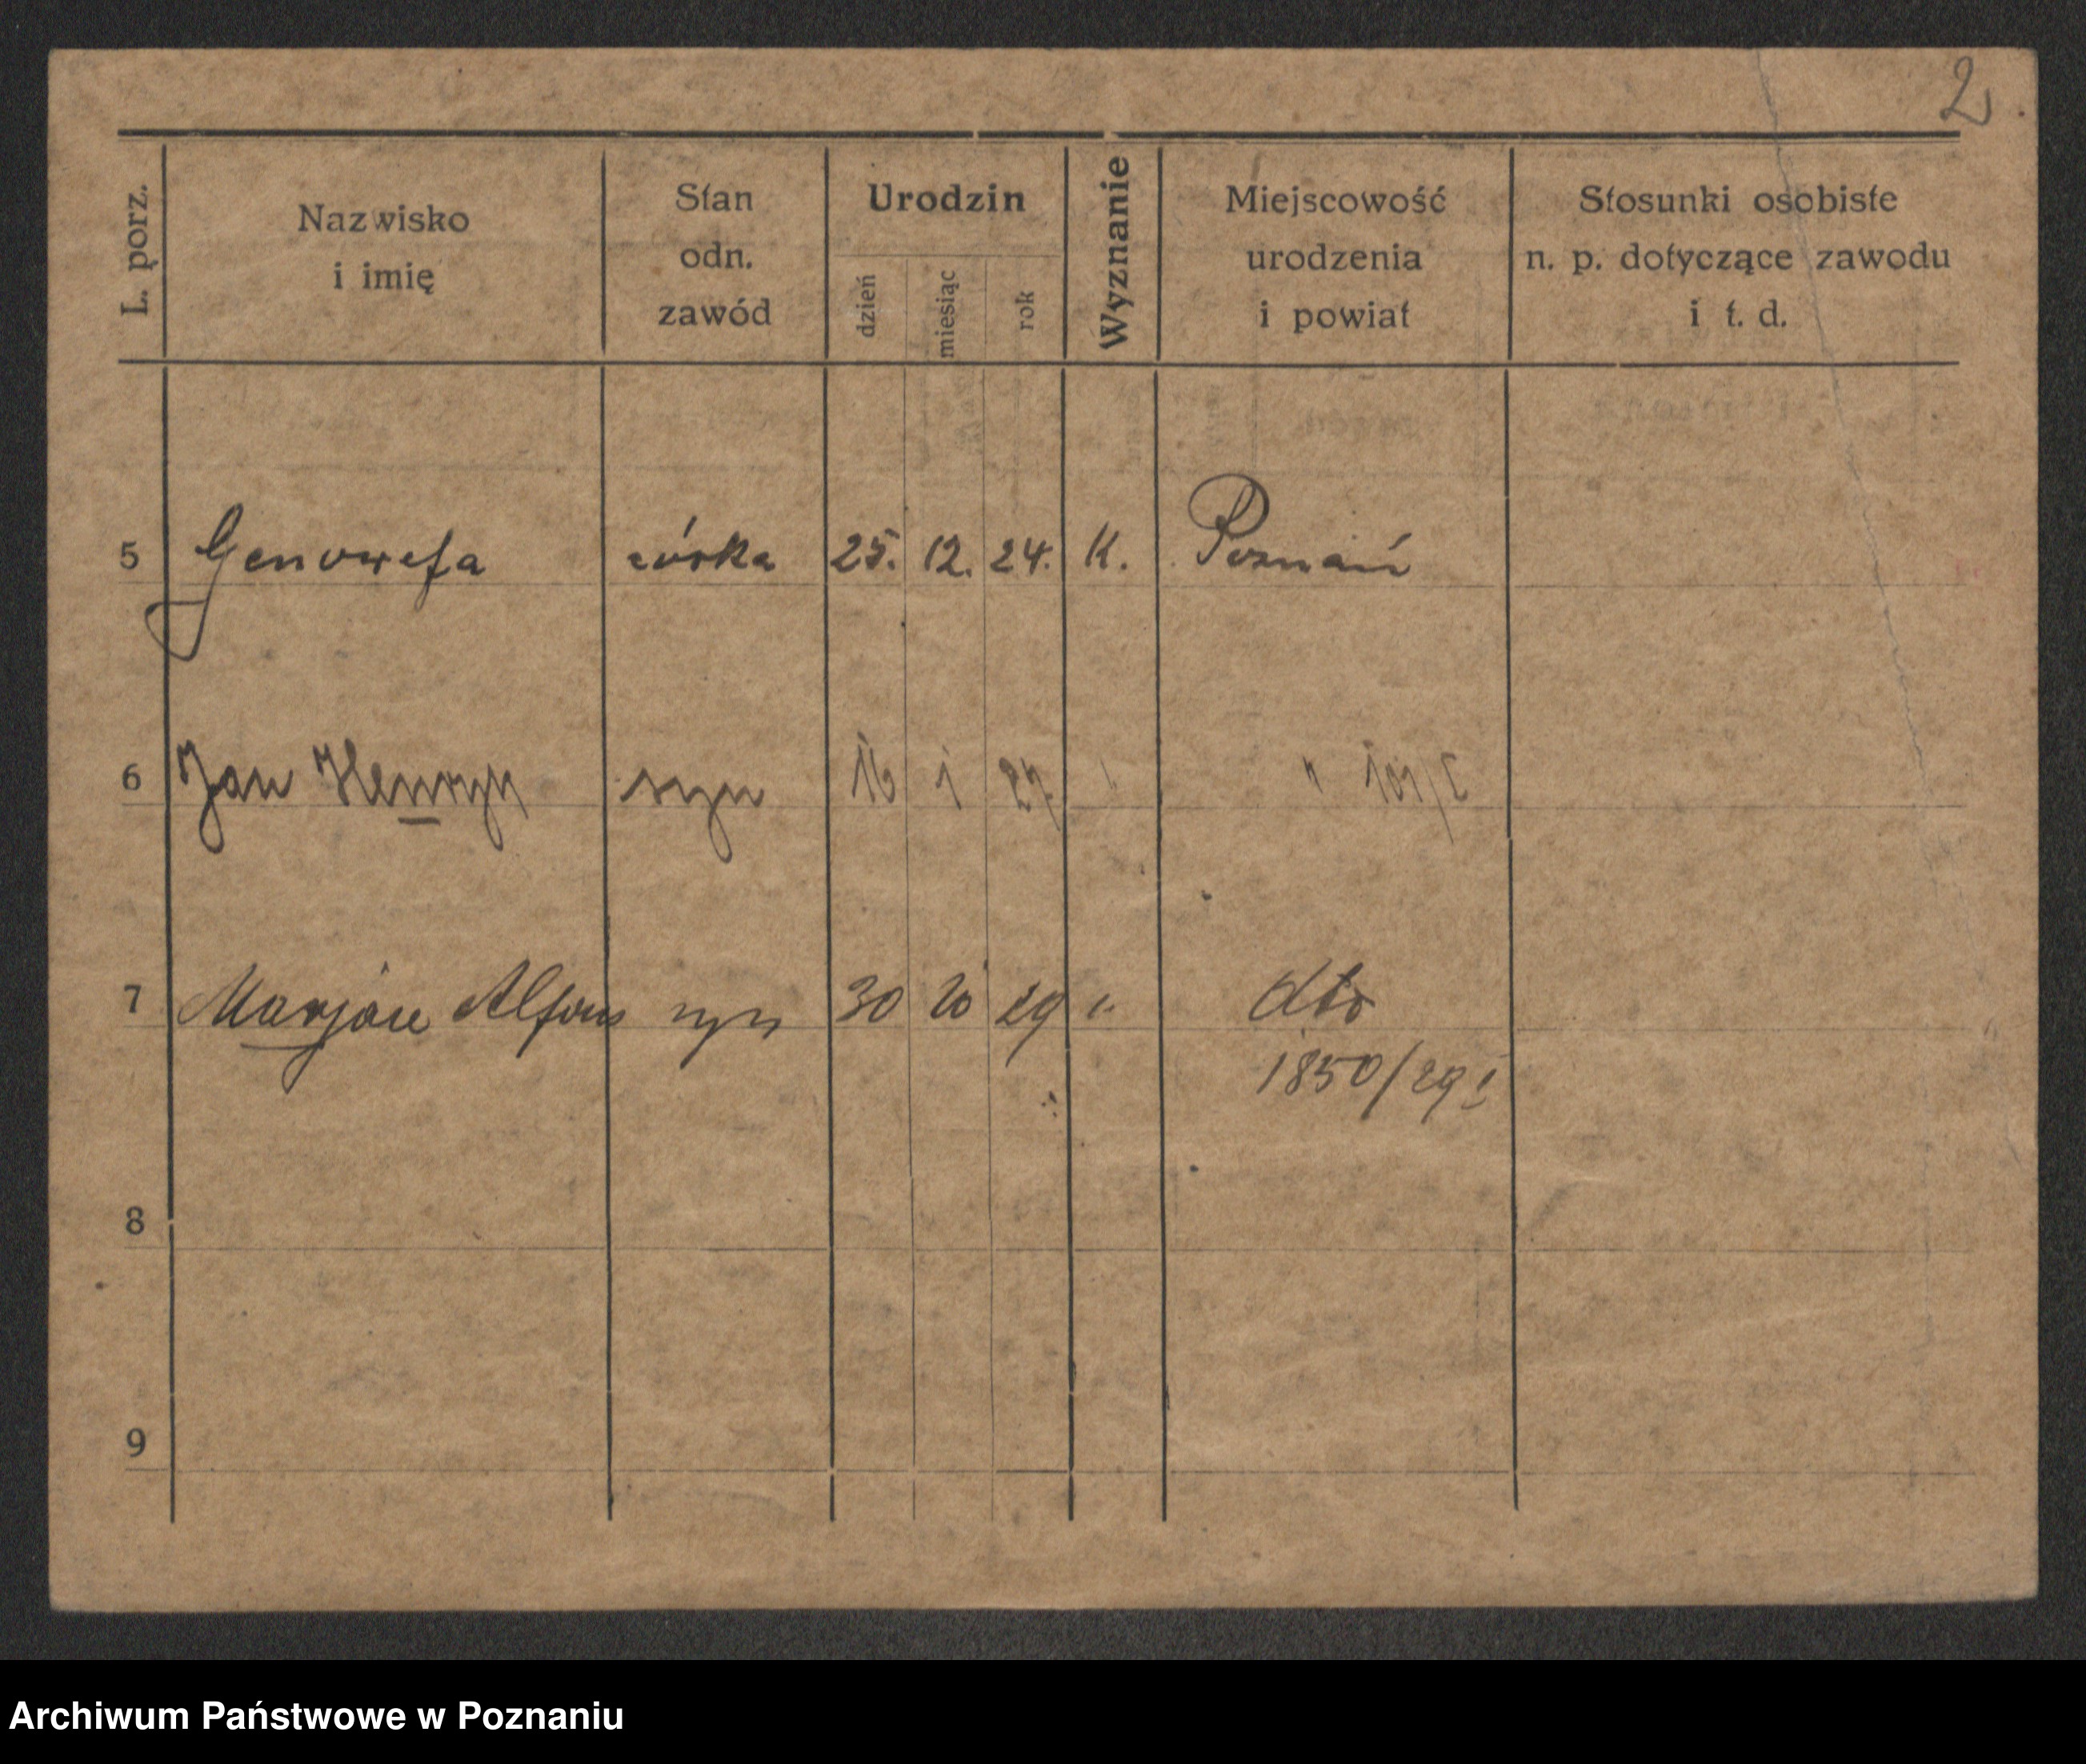 2
L. porz.
Nazwisko
i imię
Stan
odn.
zawód
Urodzin
dzień
miesiąc
rok
Wyznanie
Miejscowość
urodzenia
i powiat
Stosunki osobiste
n. p. dotyczące zawodu
i t. d.
5 Genowefa córka 25. 12. 24. K. Poznań
6 Jan Henryk syn 16 1 27 " "
7 Marjan Alfons syn 30 10 29 " dto
1850/29 I
8
9
Archiwum Państwowe w Poznaniu